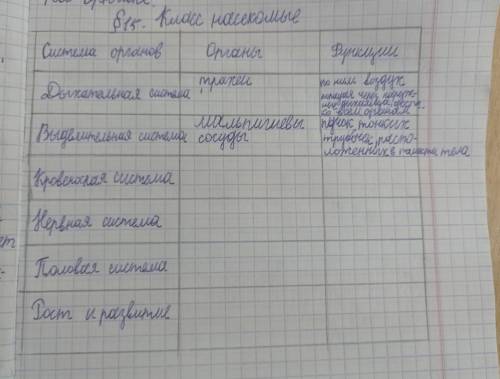 §15. Класс насекомые
Система органов Органы Функции
Дыхательная система трахеи по ним воздух
через
ко всем органам
Выделительная система мальпигиевы сосуды пучок тонких
трубочек, распо-
ложенных в полости тела
Кровеносная система
Нервная система
Половая система
Рост и развитие